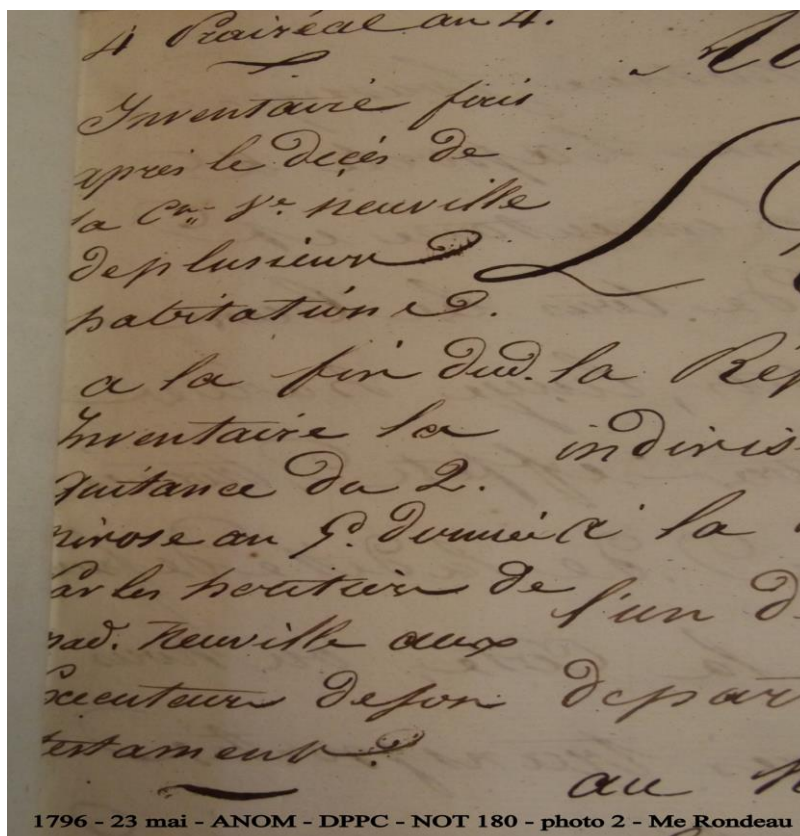 4 Prairéal an 4.
Inventaire fais
après le décés de
la Cne. Ve. neuville
de plusieurs
habitations.
a la fin dud.
Inventaire la
quitance du 2.
nivose an 5. donnée
par les heritiers de
mad. Neuville aux
executeurs de son
testament.
la Rép
indivis
à la
l'un d
depar
au
1796 - 23 mai - ANOM - DPPC - NOT 180 - photo 2 - Me Rondeau